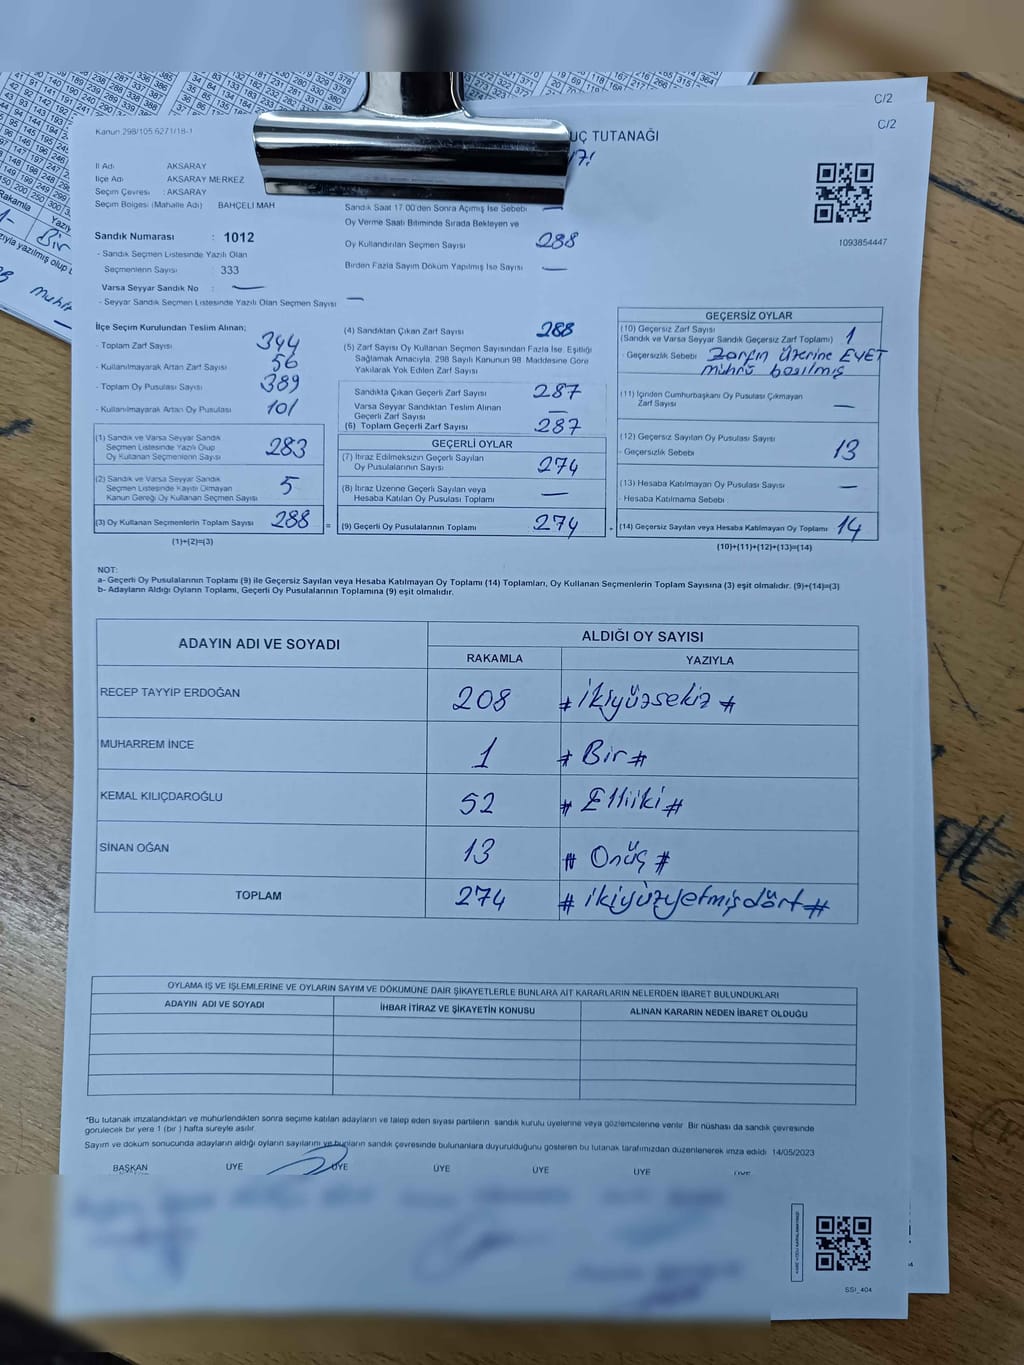 C/2
C/2
Kanun 298/105 6271/18-1
UÇ TUTANAĞI
17!
İl Adı AKSARAY
İlçe Adı AKSARAY MERKEZ
Seçim Çevresi : AKSARAY
Seçim Bölgesi (Mahalle Adı) BAHÇELİ MAH
Sandık Saat 17 00'den Sonra Açılmış İse Sebebi —
Oy Verme Saati Bitiminde Sırada Bekleyen ve
Oy Kullandırılan Seçmen Sayısı 288
Birden Fazla Sayım Döküm Yapılmış İse Sayısı —
1093854447
Sandık Numarası : 1012
- Sandık Seçmen Listesinde Yazılı Olan
Seçmenlerin Sayısı : 333
Varsa Seyyar Sandık No : —
- Seyyar Sandık Seçmen Listesinde Yazılı Olan Seçmen Sayısı —
İlçe Seçim Kurulundan Teslim Alınan;
- Toplam Zarf Sayısı 344
- Kullanılmayarak Artan Zarf Sayısı 56
- Toplam Oy Pusulası Sayısı 389
- Kullanılmayarak Artan Oy Pusulası 101
(1) Sandık ve Varsa Seyyar Sandık
Seçmen Listesinde Yazılı Olup
Oy Kullanan Seçmenlerin Sayısı 283
(2) Sandık ve Varsa Seyyar Sandık
Seçmen Listesinde Kayıtlı Olmayan
Kanun Gereği Oy Kullanan Seçmen Sayısı 5
(3) Oy Kullanan Seçmenlerin Toplam Sayısı 288 =
(1)+(2)=(3)
(4) Sandıktan Çıkan Zarf Sayısı 288
(5) Zarf Sayısı Oy Kullanan Seçmen Sayısından Fazla İse Eşitliği
Sağlamak Amacıyla, 298 Sayılı Kanunun 98. Maddesine Göre
Yakılarak Yok Edilen Zarf Sayısı
Sandıkta Çıkan Geçerli Zarf Sayısı 287
Varsa Seyyar Sandıktan Teslim Alınan
Geçerli Zarf Sayısı —
(6) Toplam Geçerli Zarf Sayısı 287
GEÇERLİ OYLAR
(7) İtiraz Edilmeksizin Geçerli Sayılan
Oy Pusulalarının Sayısı 274
(8) İtiraz Üzerine Geçerli Sayılan veya
Hesaba Katılan Oy Pusulası Toplamı —
(9) Geçerli Oy Pusulalarının Toplamı 274 +
GEÇERSİZ OYLAR
(10) Geçersiz Zarf Sayısı
(Sandık ve Varsa Seyyar Sandık Geçersiz Zarf Toplamı) 1
- Geçersizlik Sebebi Zarfın Üzerine EVET
mührü basılmış
(11) İçinden Cumhurbaşkanı Oy Pusulası Çıkmayan
Zarf Sayısı —
(12) Geçersiz Sayılan Oy Pusulası Sayısı 13
- Geçersizlik Sebebi
(13) Hesaba Katılmayan Oy Pusulası Sayısı —
- Hesaba Katılmama Sebebi
(14) Geçersiz Sayılan veya Hesaba Katılmayan Oy Toplamı 14
(10)+(11)+(12)+(13)=(14)
NOT:
a- Geçerli Oy Pusulalarının Toplamı (9) ile Geçersiz Sayılan veya Hesaba Katılmayan Oy Toplamı (14) Toplamları, Oy Kullanan Seçmenlerin Toplam Sayısına (3) eşit olmalıdır. (9)+(14)=(3)
b- Adayların Aldığı Oyların Toplamı, Geçerli Oy Pusulalarının Toplamına (9) eşit olmalıdır.
ADAYIN ADI VE SOYADI ALDIĞI OY SAYISI
RAKAMLA YAZIYLA
RECEP TAYYIP ERDOĞAN 208 # İkiyüzsekiz #
MUHARREM İNCE 1 # Bir #
KEMAL KILIÇDAROĞLU 52 # Elliiki #
SİNAN OĞAN 13 # Onüç #
TOPLAM 274 # ikiyüzyetmişdört #
OYLAMA İŞ VE İŞLEMLERİNE VE OYLARIN SAYIM VE DÖKÜMÜNE DAİR ŞİKAYETLERLE BUNLARA AİT KARARLARIN NELERDEN İBARET BULUNDUKLARI
ADAYIN ADI VE SOYADI İHBAR İTİRAZ VE ŞİKAYETİN KONUSU ALINAN KARARIN NEDEN İBARET OLDUĞU
*Bu tutanak imzalandıktan ve mühürlendikten sonra seçime katılan adayların ve talep eden siyasi partilerin sandık kurulu üyelerine veya gözlemcilerine verilir Bir nüshası da sandık çevresinde
görülecek bir yere 1 (bir) hafta süreyle asılır.
Sayım ve döküm sonucunda adayların aldığı oyların sayılarını ve bunların sandık çevresinde bulunanlara duyurulduğunu gösteren bu tutanak tarafımızdan düzenlenerek imza edildi 14/05/2023
BAŞKAN ÜYE ÜYE ÜYE ÜYE ÜYE ÜYE
SSI_404